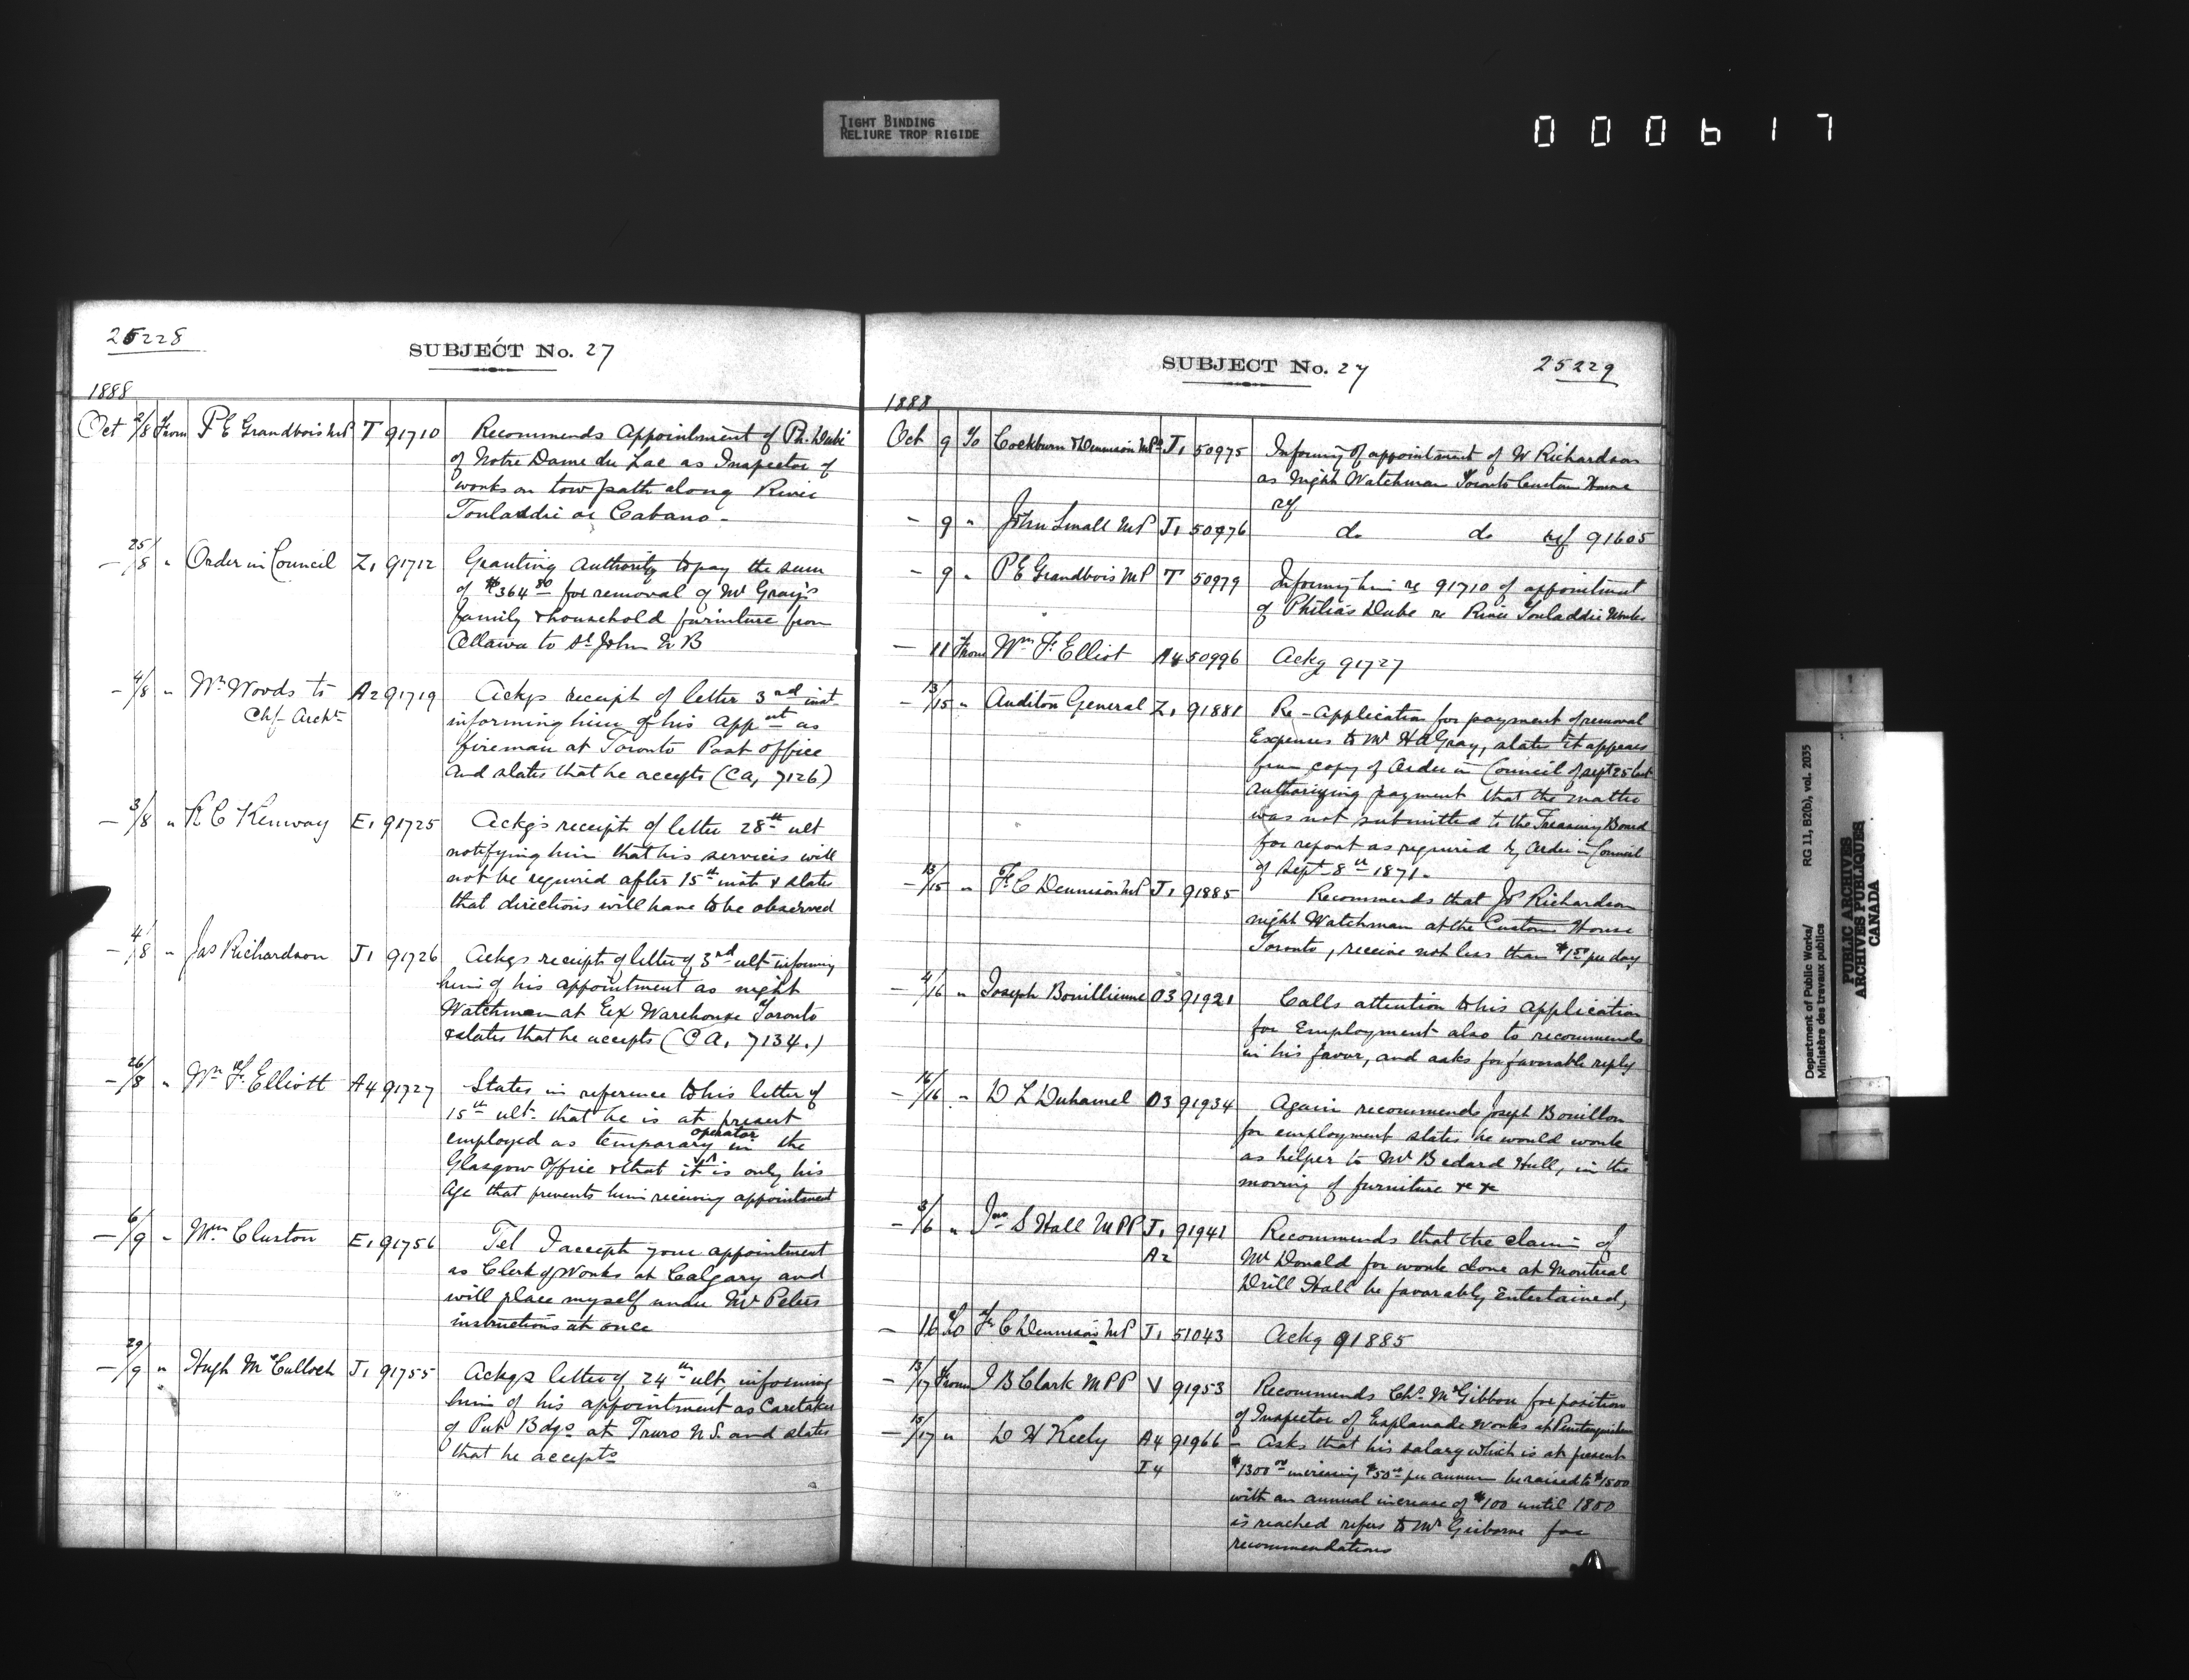 TIGHT BINDING
RELIURE TROP RIGIDE
000617
25228
SUBJECT No. 27
1888
Oct 2/8 From P E Grandbois MP T 91710 Recommends Appointment of Ph. Dubé
of Notre Dame du Lac as Inspector of
works on tow path along River
Touladdie or Cabano -
- 25/8 " Order in Council Z1 91712 Granting Authority to pay the sum
of $364 80 for removal of Mr Gray's
family & household furniture from
Ottawa to St John N B
- 4/8 " Wm Woods to A2 91719 Ackgs receipt of letter 3rd inst
Chf Archt informing him of his appnt as
fireman at Toronto Post office
and states that he accepts (Ca, 7126)
- 3/8 " R C Kenway E1 91725 Ackgs receipt of letter 28th ult
notifying him that his services will
not be required after 15th inst & states
that directions will have to be observed
- 4/8 " Jas Richardson J1 91726 Ackgs receipt of letter of 3rd ult informing
him of his appointment as night
Watchman at Ex Warehouse Toronto
& states that he accepts (C A, 7134.)
- 26/8 " Wm F. Elliott A4 91727 States in reference to his letter of
15th ult. that he is at present
employed as temporary operator in the
Glasgow Office & that it is only his
Age that prevents him receiving appointment
- 6/9 " Wm Cluston E1 91756 Tel I accept your appointment
as Clerk of Works at Calgary and
will place myself under Mr Peters
instructions at once
- 29/9 " Hugh McCulloch J1 91755 Ackgs letter of 24th ult, informing
him of his appointment as Caretaker
of Pub Bdgs at Truro N.S. and states
that he accepts
SUBJECT No. 27
25229
1888
Oct 9 To Cockburn & Dennison MPs J1 50975 Informing of appointment of W Richardson
as Night Watchman Toronto Custom House
ref
- 9 " John Small MP J1 50976 do do ref 91605
- 9 " P E Grandbois MP T 50979 Informing him re 91710 of appointment
of Philias Dube re River Touladdie Works
- 11 From Wm F. Elliot A4 50996 Ackg 91727
- 13/15 " Auditor General Z1 91881 Re - Application for payment of removal
Expenses to Mr H A Gray, states it appears
from copy of Order in Council of Sept 25 last
authorizing payment that the matter
was not submitted to the Treasury Board
for report as required by Order in Council
of Sept 8th 1871.
- 13/15 " F. C Dennison MP J1 91885 Recommends that Js Richardson
night Watchman at the Custom House
Toronto, receive not less than $1 50 per day
- 4/16 " Joseph Bouillienne O3 91921 Calls attention to his application
for Employment also to recommends
in his favor, and asks for favorable reply
- 16/16 " D L Duhamel O3 91934 Again recommends Joseph Bouillon
for employment states he would work
as helper to Mr Bedard Hull, in the
moving of furniture &c &c
- 3/6 " Jno S Hall MPP J1 91941 Recommends that the claim of
A2 Mr Donald for work done at Montreal
Drill Hall be favorably Entertained,
- 16 To F. C Dennison MP J1 51043 Ackg 91885
- 13/17 From J B Clark MPP V 91953 Recommends Chs McGibbon for position
of Inspector of Esplanade works at Penetanguishene
- 15/17 " D H Keely A4 91966 - Asks that his salary which is at present
I4 $1300 00 increasing $50 00 per annum be raised to $1500
with an annual increase of $100 until 1800
is reached refers to Mr Gisborne for
recommendations
Department of Public Works/ RG 11, B2(b), vol. 2035
Ministère des travaux publics
PUBLIC ARCHIVES
ARCHIVES PUBLIQUES
CANADA